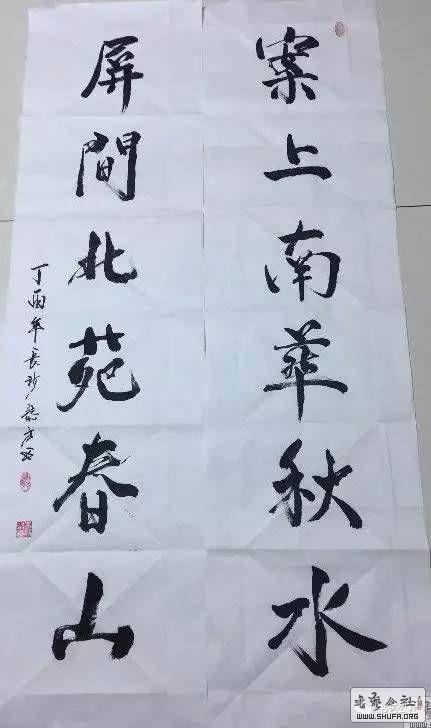 案上南華秋水
屏間北苑春山
丁酉年長沙
WWW.SHUFA.ORG